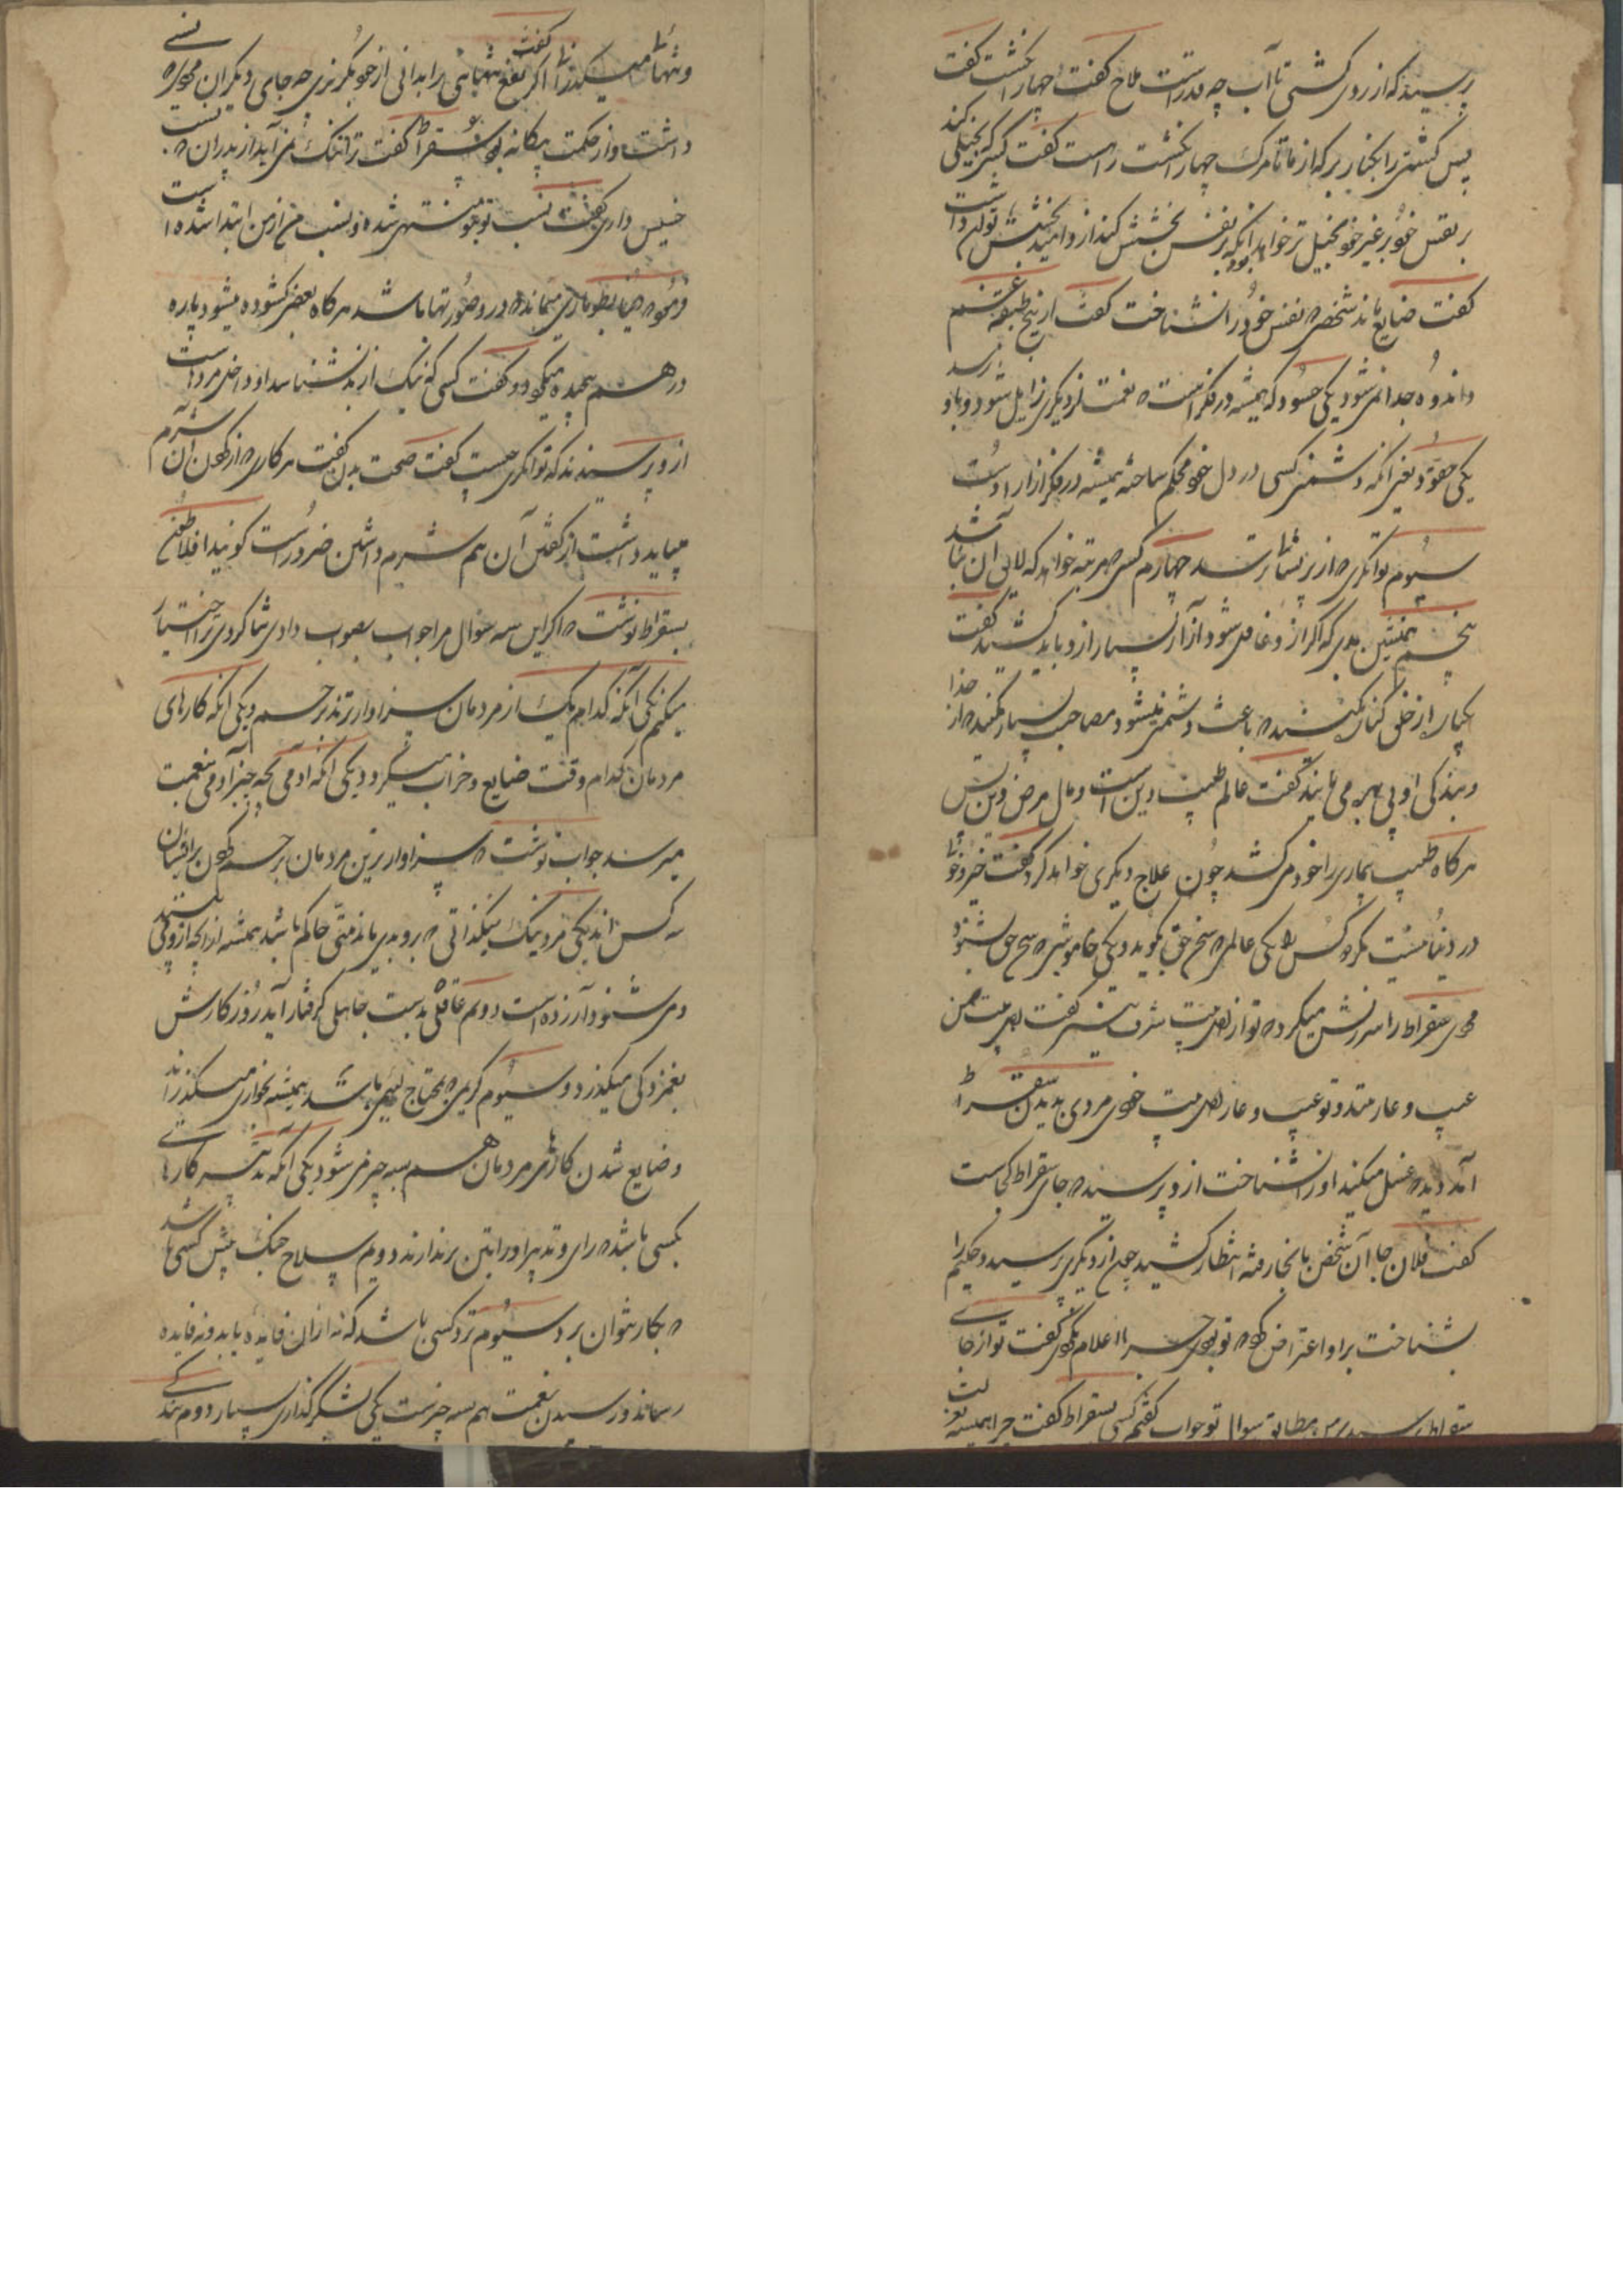 پرسید که از روی کشتی تا آب چه قدر است ملاح گفت چهار انگشت گفت
پس کشتی را بکنار بر که از ما تا مرگ چهار انگشت راه است گفت کسی بخیلی کند
بر نفس خود بر غیر خود بخیل تر خواهد بود آنکه بر نفس بخشش کند از و امید بخشش توان داشت
گفت ضایع ماند شخصی که نفس خود را نشناخت گفت از پنج طبقه غم
و اندوه جدا نمی شود یکی حسود که همیشه در فکر است که نعمت از دیگری زایل شود و باو رسد
یکی حقود یعنی آنکه دشمنی کسی در دل خود محکم ساخته همیشه در فکر آزار اوست
سیوم توانگری که از پریشانی ترسد چهارم کسی که مرتبه خواهد که لایق آن نباشد
پنجم همنشین بدی که اگر ازو غافل شود آزار بسیار ازو باید کشید گفت
یکبار از خلق کنار مکشید که باعث دشمنی میشود و مصاحب بسیار مکنید که از خدا
و بندگی او بی بهره می مانید گفت عالم طبیب دین است و مال مرض دین پس
هرگاه طبیب بیماری را بخود می کشد چون علاج دیگری خواهد کرد گفت خیر و خوبی
در دنیا نیست مگر دو کس را یکی عالمی که سخن حق گوید و یکی خاموشی که سخن حق شنود
مردی سقراط را سرزنش میکرد که تو از اهل بیت شرف نیستی گفت اهل بیت من
عیب و عار منند و تو عیب و عار اهل بیت خودی مردی بدیدن سقراط
آمد دید که غسل میکند او را نشناخت ازو پرسید که جای سقراط کجاست
گفت فلان جا آن شخص بآنجا رفته انتظار کشید چون از دیگری پرسید و حکیم را
بشناخت بر او اعتراض کرد که تو بودی چرا اعلام نکردی گفت تو از جای
سقراط پرسیدی من مطابق سوال تو جواب گفتم کسی بسقراط گفت چرا همیشه
و تنها میگذرانی گفت اگر نفع تنهائی را بدانی از خود بگریزی چه جای دیگران مردی که نسبی
داشت و از حکمت بیگانه بود سقراط را گفت ترا ننگ نمی آید از پدران که نسب
خسیس داری گفت نسب تو بتو منتهی شده و نسب من از من ابتدا شده است
و مردم دنیا بطوماری میمانند که در و صورتها باشد هرگاه بعضی گشوده میشود پاره
در هم پیچیده میگردد و گفت کسی که نیک از بد نشناسد او داخل مردار است
ازو پرسیدند که توانگری چیست گفت صحت بدن گفت هر کاری که از کردن آن شرم
میباید داشت از گفتن آن هم شرم داشتن ضرور است گویند افلاطون
بسقراط نوشت که اگر این سه سوال مرا جواب بصواب دادی شاگردی ترا اختیار
میکنم یکی آنکه کدام یک از مردمان سزاوارترند برحم و یکی آنکه کارهای
مردمان کدام وقت ضایع و خراب میگردد و یکی آنکه آدمی بچه چیز آدمی بنعمت
میرسد جواب نوشت که سزاوارترین مردمان برحم کردن بر ایشان
سه کس اند یکی مرد نیک نیکذاتی که برو بدی ماند حاکم باشد همیشه از آنچه ازو می بیند
و می شنود آزرده است دویم عاقلی بدست جاهلی گرفتار آید روزگارش
بغمزدگی میگذرد و سیوم کریمی که محتاج لئیمی باشد همیشه بخواری میگذراند
و ضایع شدن کارهای مردمان هم بسه چیز می شود یکی آنکه تدبیر کارها
بکسی باشد که رای و تدبیر او را بتن برندارند دویم سلاح جنگ پیش کسی باشد
که بکار نتوان برد سیوم نزد کسی باشد که نه از آن فایده یابد و نه فایده
رساند و رسیدن نعمت هم سه چیز است یکی شکر گذاری بسیار دوم بندگی